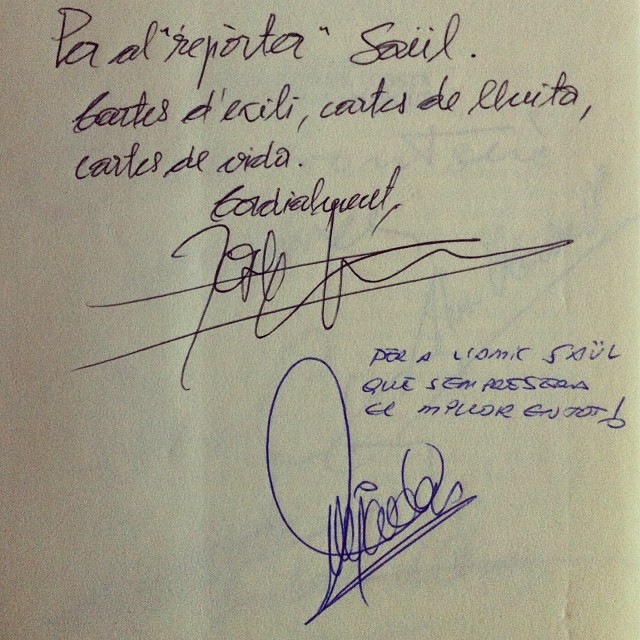 Per al "repòrter" Saül.
Cartes d'exili, cartes de lluita,
cartes de vida.
Cordialment,
PER A L'AMIC SAÜL
QUE SEMPRE SERA
EL MILLOR EN TOT!